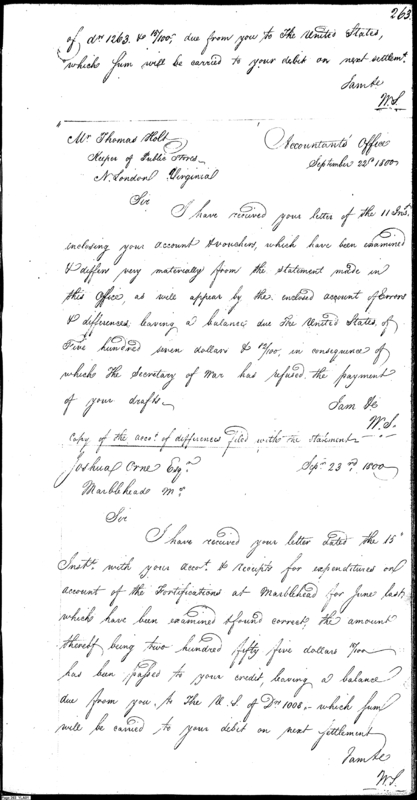 263.
of drs 1263. & 13/100, due from you to The United States,
which sum will be carried to your debit on next settlemt.
I am &c
W.S.
Mr Thomas Holt
Keeper of Public Stores
N. London Virginia
Accountants Office
September 22d 1800
Sir
I have received your letter of the 11 Inst.
enclosing your account & vouchers, which have been examined
& differs very materially from the statement made in
this Office, as will appear by the enclosed account of Errors
& differences, leaving a balance due The United States of
Five hundred seven dollars & 12/100, in consequence of
which The Secretary of War has refused the payment
of your drafts
I am &c
W.S.
Copy of the acco. of differences filed with the statement
Joshua Orne Esqr.
Sepr 23rd, 1800
Marblehead Ms
Sir
I have received your letter dated the 15
Instt. with your accot. & receipts for expenditures on
account of the Fortifications at Marblehead for June last,
which have been examined & found correct, the amount
thereof being two hundred fifty five dollars
has been passed to your credit, leaving a balance
due from you to The U.S. of Drs 1008,- which sum
will be carried to your debit on next settlement
I am &c
W.S.